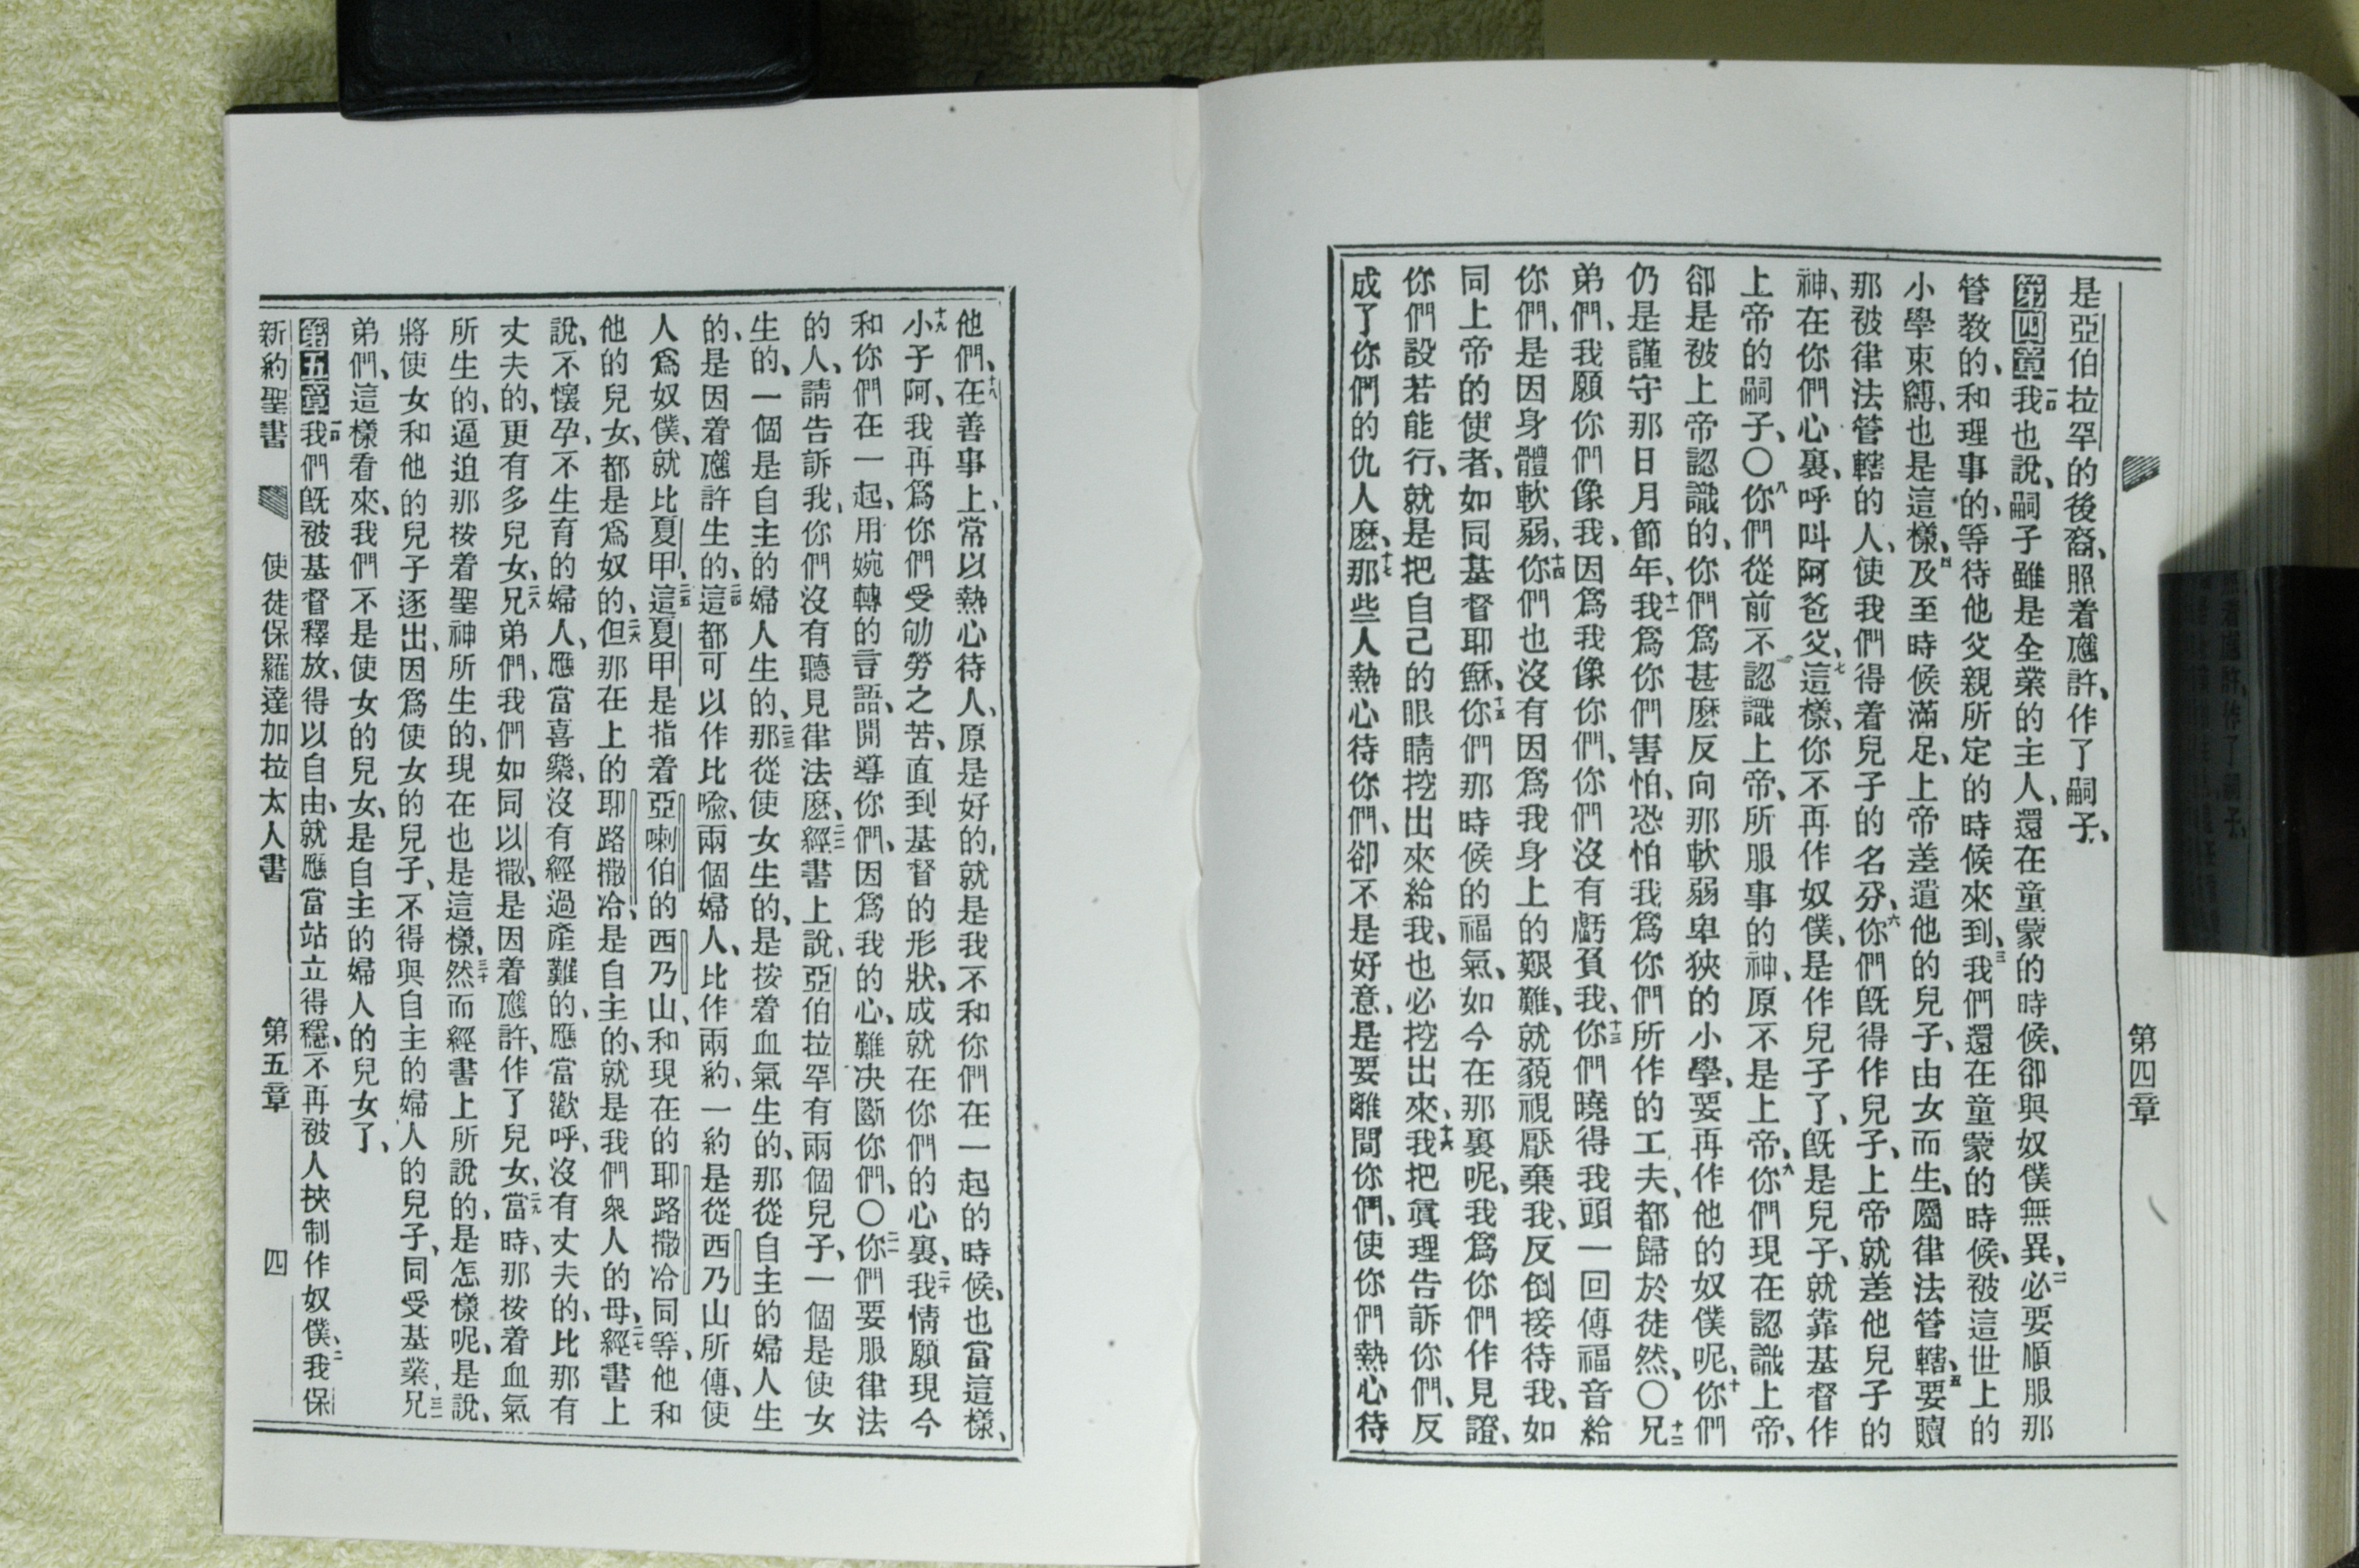 第四章
是亞伯拉罕的後裔、照着應許、作了嗣子、
第四章一我也說、嗣子雖是全業的主人、還在童蒙的時候、卻與奴僕無異、二必要順服那
管教的、和理事的、等待他父親所定的時候來到、三我們還在童蒙的時候、被這世上的
小學束縛、也是這樣、四及至時候滿足、上帝差遣他的兒子、由女而生、屬律法管轄、五要贖
那被律法管轄的人、使我們得着兒子的名分、六你們旣得作兒子、上帝就差他兒子的
神、在你們心裏、呼叫阿爸父、七這樣、你不再作奴僕、是作兒子了、旣是兒子、就靠基督作
上帝的嗣子、〇八你們從前不認識上帝、所服事的神、原不是上帝、九你們現在認識上帝、
卻是被上帝認識的、你們爲甚麽反向那軟弱卑狹的小學、要再作他的奴僕呢、十你們
仍是謹守那日月節年、十一我爲你們害怕、恐怕我爲你們所作的工夫、都歸於徒然、〇十二兄
弟們、我願你們像我、因爲我像你們、你們沒有虧負我、十三你們曉得我頭一回傳福音給
你們、是因身體軟弱、十四你們也沒有因爲我身上的艱難、就藐視厭棄我、反倒接待我、如
同上帝的使者、如同基督耶穌、十五你們那時候的福氣、如今在那裏呢、我爲你們作見證、
你們設若能行、就是把自己的眼睛挖出來給我、也必挖出來、十六我把眞理告訴你們、反
成了你們的仇人麽、十七那些人熱心待你們、卻不是好意、是要離間你們、使你們熱心待
他們、十八在善事上、常以熱心待人、原是好的、就是我不和你們在一起的時候、也當這樣、
十九小子阿、我再爲你們受劬勞之苦、直到基督的形狀、成就在你們的心裏、二十我情願現今
和你們在一起、用婉轉的言語、開導你們、因爲我的心、難决斷你們、〇二一你們要服律法
的人、請告訴我、你們沒有聽見律法麽、二二經書上說、亞伯拉罕有兩個兒子、一個是使女
生的、一個是自主的婦人生的、二三那從使女生的、是按着血氣生的、那從自主的婦人生
的、是因着應許生的、二四這都可以作比喻、兩個婦人、比作兩約、一約是從西乃山所傳、使
人爲奴僕、就比夏甲、二五這夏甲是指着亞喇伯的西乃山、和現在的耶路撒冷同等、他和
他的兒女、都是爲奴的、二六但那在上的耶路撒冷、是自主的、就是我們衆人的母、二七經書上
說、不懷孕、不生育的婦人、應當喜樂、沒有經過產難的、應當歡呼、沒有丈夫的、比那有
丈夫的、更有多兒女、二八兄弟們、我們如同以撒、是因着應許、作了兒女、二九當時、那按着血氣
所生的、逼迫那按着聖神所生的、現在也是這樣、三十然而經書上所說的、是怎樣呢、是說、
將使女和他的兒子逐出、因爲使女的兒子、不得與自主的婦人的兒子、同受基業、三一兄
弟們、這樣看來、我們不是使女的兒女、是自主的婦人的兒女了、
第五章一我們旣被基督釋放、得以自由、就應當站立得穩、不再被人挾制作奴僕、二我保
新約聖書 使徒保羅達加拉太人書 第五章 四